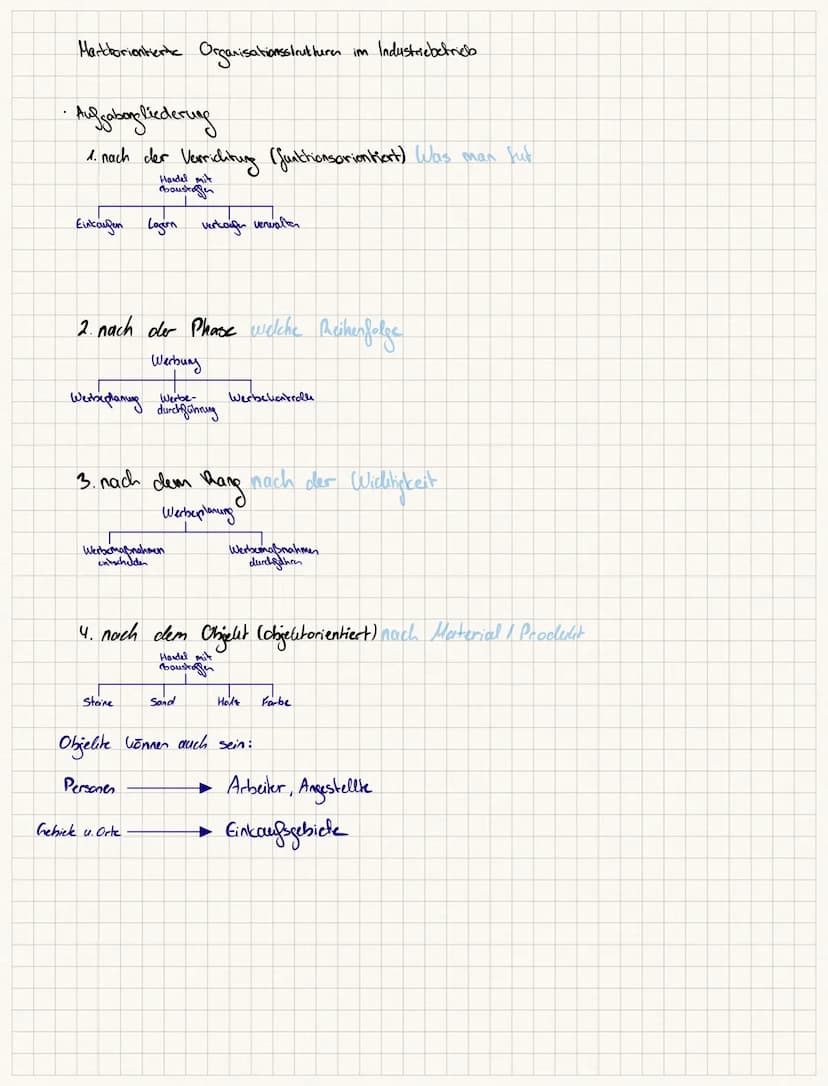 Marktorientierte Organisationsstrukturen im Industriebetrieb
· Aufgabengliederung
1. nach der Verrichtung (funktionsorientiert) Was man tut
Handel mit
Baustoffen
Einkaufen Lagern verkaufen verwalten
2. nach der Phase welche Reihenfolge
Werbung
Werbeplanung Werbe- Werbekontrolle
durchführung
3. nach dem Rang nach der Wichtigkeit
Werbeplanung
Werbemaßnahmen Werbemaßnahmen
entscheiden durchführen
4. nach dem Objekt (objektorientiert) nach Material / Produkt
Handel mit
Baustoffen
Steine Sand Holz Farbe
Objekte können auch sein:
Personen Arbeiter, Angestellte
Gebiete u. Orte Einkaufsgebiete